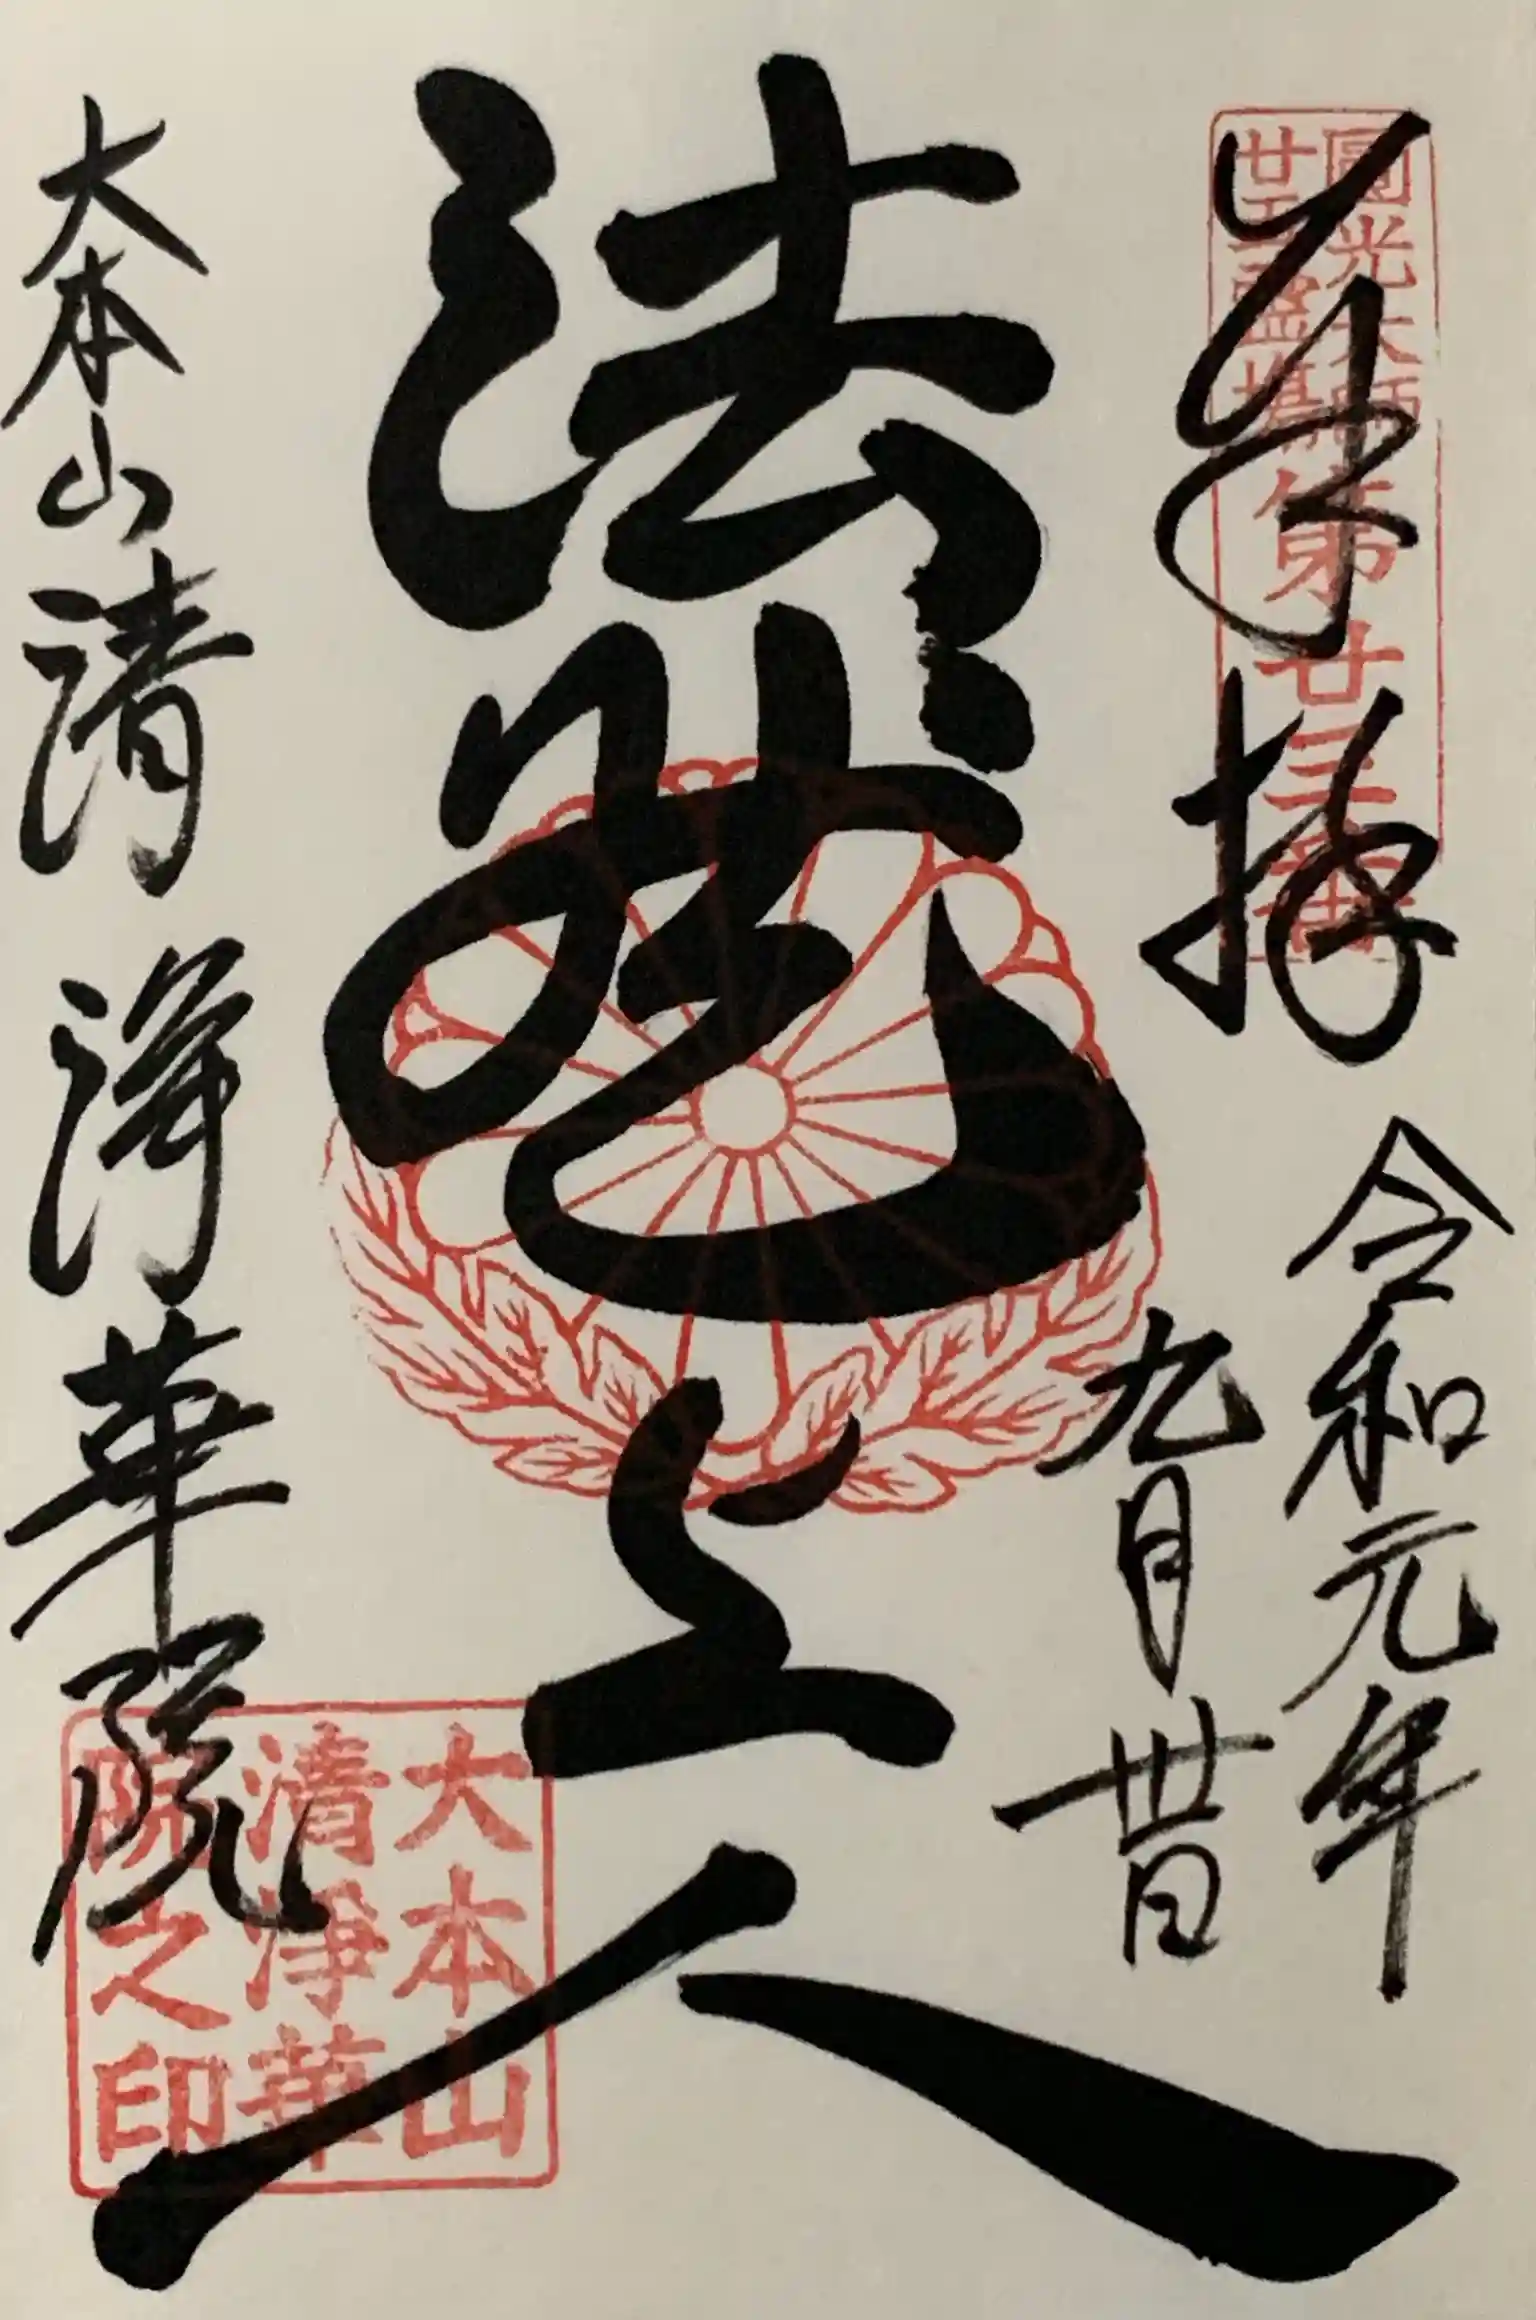 奉拝
圓光大師
廿五霊場第廿三番
令和元年
九月卅日
法然上人
大本山清浄華院
大本山
清浄華
院之印